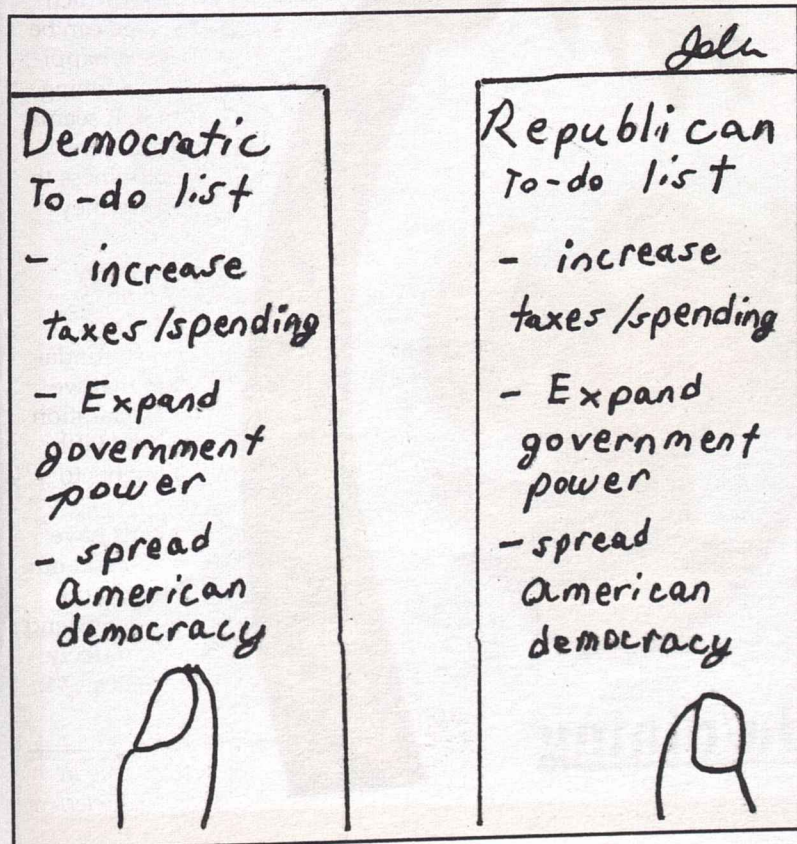 John
Democratic
To-do list
- increase
taxes/spending
- Expand
government
power
- spread
American
democracy
Republican
To-do list
- increase
taxes/spending
- Expand
government
power
- spread
American
democracy